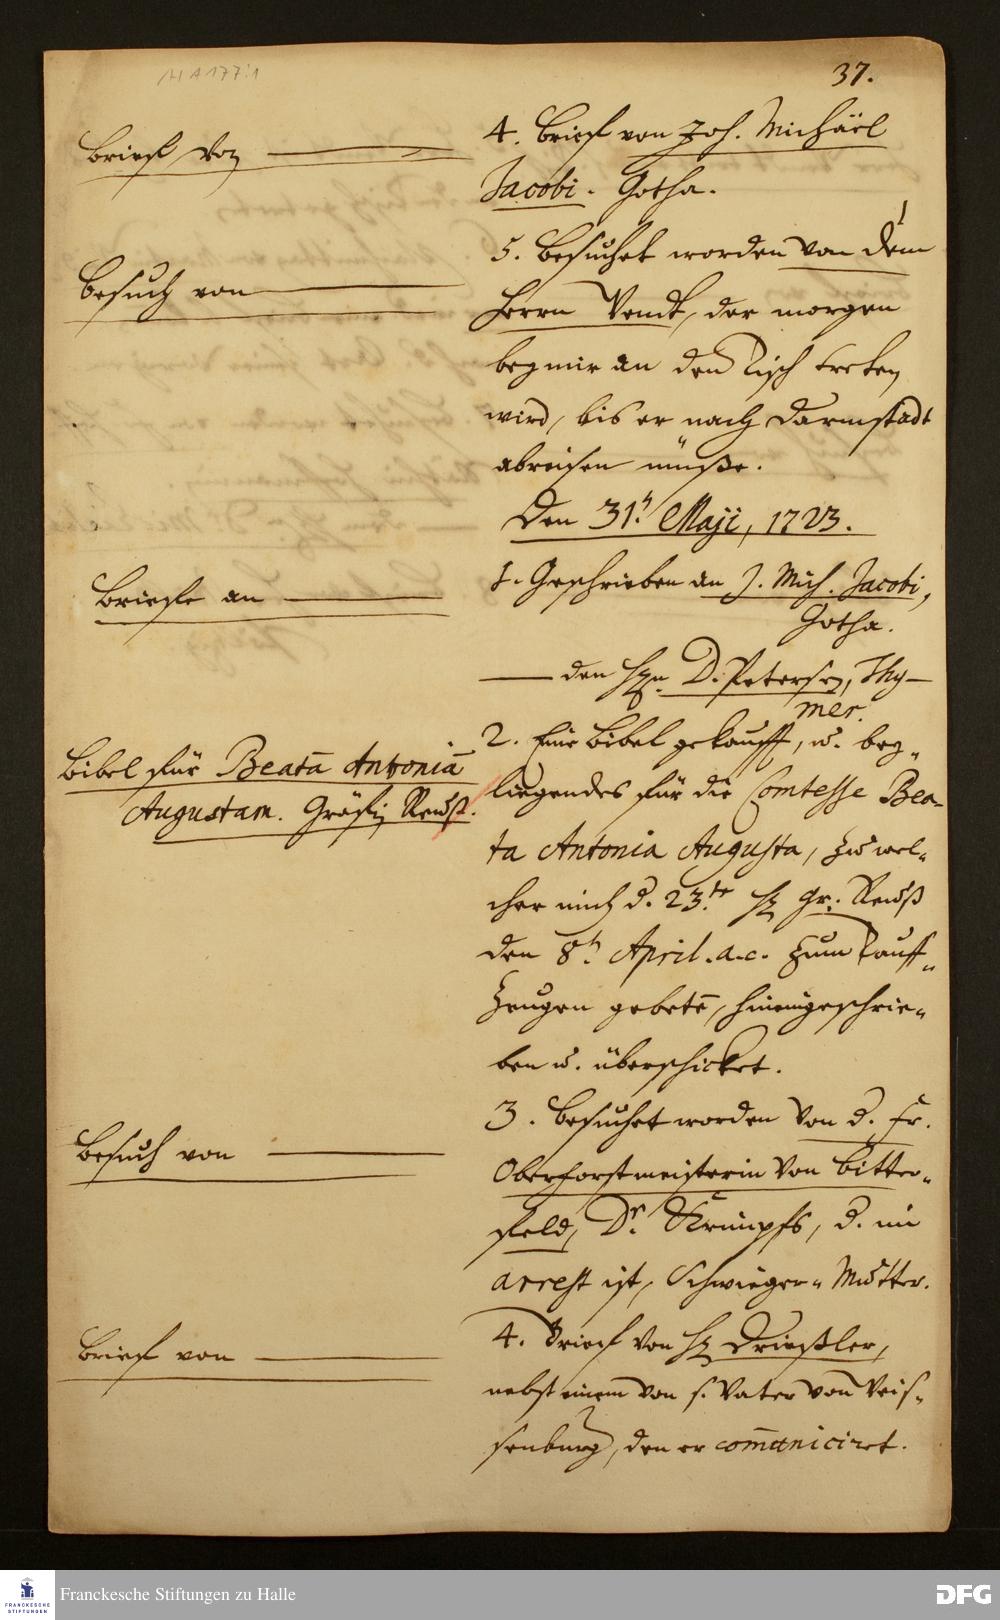 H A 177:1
37.
Brief von
4. Brief von Joh. Michäel
Jacobi. Gotha.
Besuch von
5. Besuchet worden von dem
Herrn Vendt, der morgen
bey mir an den Tisch treten
wird, bis er nach Darmstadt
abreisen müße.
Den 31t. Maji, 1723.
Briefe an
1. Geschrieben an J. Mich. Jacobi,
Gotha.
den Hrn. D. Petersen, Thy-
mer.
Bibel für Beatā Antoniā
Augustam. Gräfin Reuß.
2. Eine Bibel gekaufft, u. bey-
liegendes für die Comtesse Bea-
ta Antonia Augusta, zu wel-
cher mich d. 23te Hr. Gr. Reuß
den 8t. April. a.c. zum Tauff-
Zeugen gebetē, hineingeschrie-
ben u. überschicket.
Besuch von
3. Besuchet worden von d. Fr.
Oberforstmeisterin von Bitter-
feld, Dr. Krumpfs, d. im
arrest ist, Schwieger-Mutter.
Brief von
4. Brief von Hr. Drießler,
nebst einem von s. Vater von Weis-
senburg, den er com̄uniciret.
FRANCKESCHE
STIFTUNGEN
Franckesche Stiftungen zu Halle
DFG